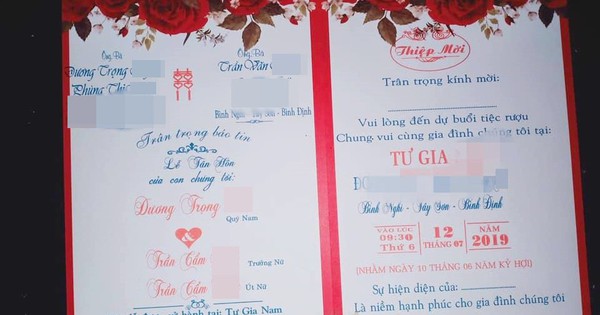 Ông Bà
Dương Trọng
Phùng Thị
Ông Bà
Trần Văn
Bình Nghi - Tây Sơn - Bình Định
Trân trọng báo tin
Lễ Tân Hôn
của con chúng tôi:
Dương Trọng
Quý Nam
&
Trần Cẩm
Trưởng Nữ
Trần Cẩm
Út Nữ
hành tại: Tư Gia Nam
Thiệp Mời
Trân trọng kính mời:
Vui lòng đến dự buổi tiệc rượu
Chung vui cùng gia đình chúng tôi tại:
TƯ GIA
Bình Nghi - Tây Sơn - Bình Định
VÀO LÚC
09:30
Thứ 6
12
THÁNG 07
NĂM
2019
[NHẰM NGÀY 10 THÁNG 06 NĂM KỶ HỢI]
Sự hiện diện của:
Là niềm hạnh phúc cho gia đình chúng tôi